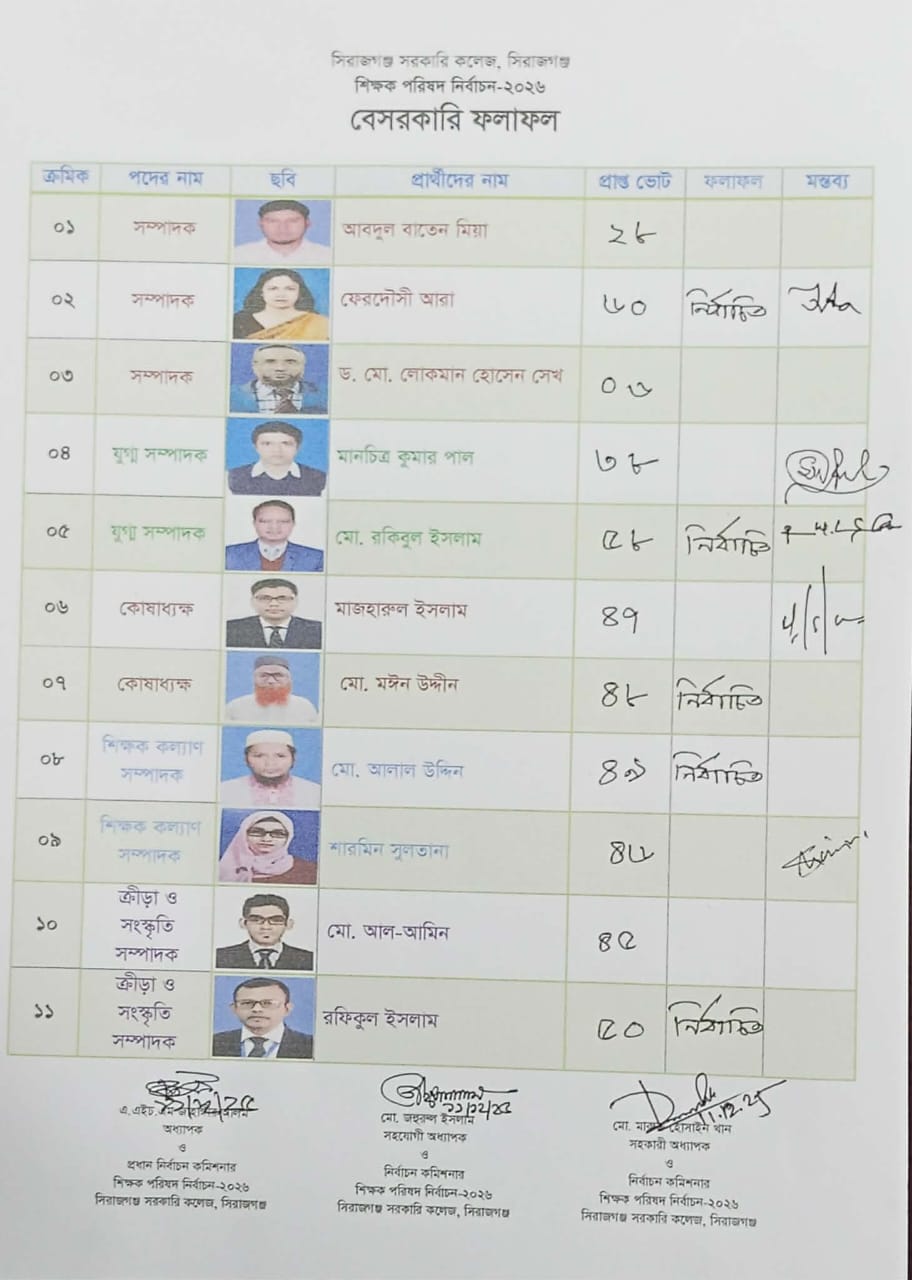 সিরাজগঞ্জ সরকারি কলেজ, সিরাজগঞ্জ
শিক্ষক পরিষদ নির্বাচন-২০২৬
বেসরকারি ফলাফল
ক্রমিক পদের নাম ছবি প্রার্থীদের নাম প্রাপ্ত ভোট ফলাফল মন্তব্য
০১ সম্পাদক আবদুল বাতেন মিয়া ২৮
০২ সম্পাদক ফেরদৌসী আরা ৬০ নির্বাচিত
০৩ সম্পাদক ড. মো. লোকমান হোসেন সেখ ০৬
০৪ যুগ্ম সম্পাদক মানচিত্র কুমার পাল ৩৮
০৫ যুগ্ম সম্পাদক মো. রকিবুল ইসলাম ৫৮ নির্বাচিত
০৬ কোষাধ্যক্ষ মাজহারুল ইসলাম ৪৭
০৭ কোষাধ্যক্ষ মো. মঈন উদ্দীন ৪৮ নির্বাচিত
শিক্ষক কল্যাণ
০৮ সম্পাদক মো. আলাল উদ্দিন ৪৯ নির্বাচিত
শিক্ষক কল্যাণ
০৯ সম্পাদক শারমিন সুলতানা ৪৬
ক্রীড়া ও
১০ সংস্কৃতি মো. আল-আমিন ৪৫
সম্পাদক
ক্রীড়া ও
১১ সংস্কৃতি রফিকুল ইসলাম ৫০ নির্বাচিত
সম্পাদক
এ.এইচ.এম
অধ্যাপক
ও
প্রধান নির্বাচন কমিশনার
শিক্ষক পরিষদ নির্বাচন-২০২৬
সিরাজগঞ্জ সরকারি কলেজ, সিরাজগঞ্জ
২১/১২/২৫
মো. জহুরুল ইসলাম
সহযোগী অধ্যাপক
ও
নির্বাচন কমিশনার
শিক্ষক পরিষদ নির্বাচন-২০২৬
সিরাজগঞ্জ সরকারি কলেজ, সিরাজগঞ্জ
মো. হোসাইন খান
সহকারী অধ্যাপক
ও
নির্বাচন কমিশনার
শিক্ষক পরিষদ নির্বাচন-২০২৬
সিরাজগঞ্জ সরকারি কলেজ, সিরাজগঞ্জ